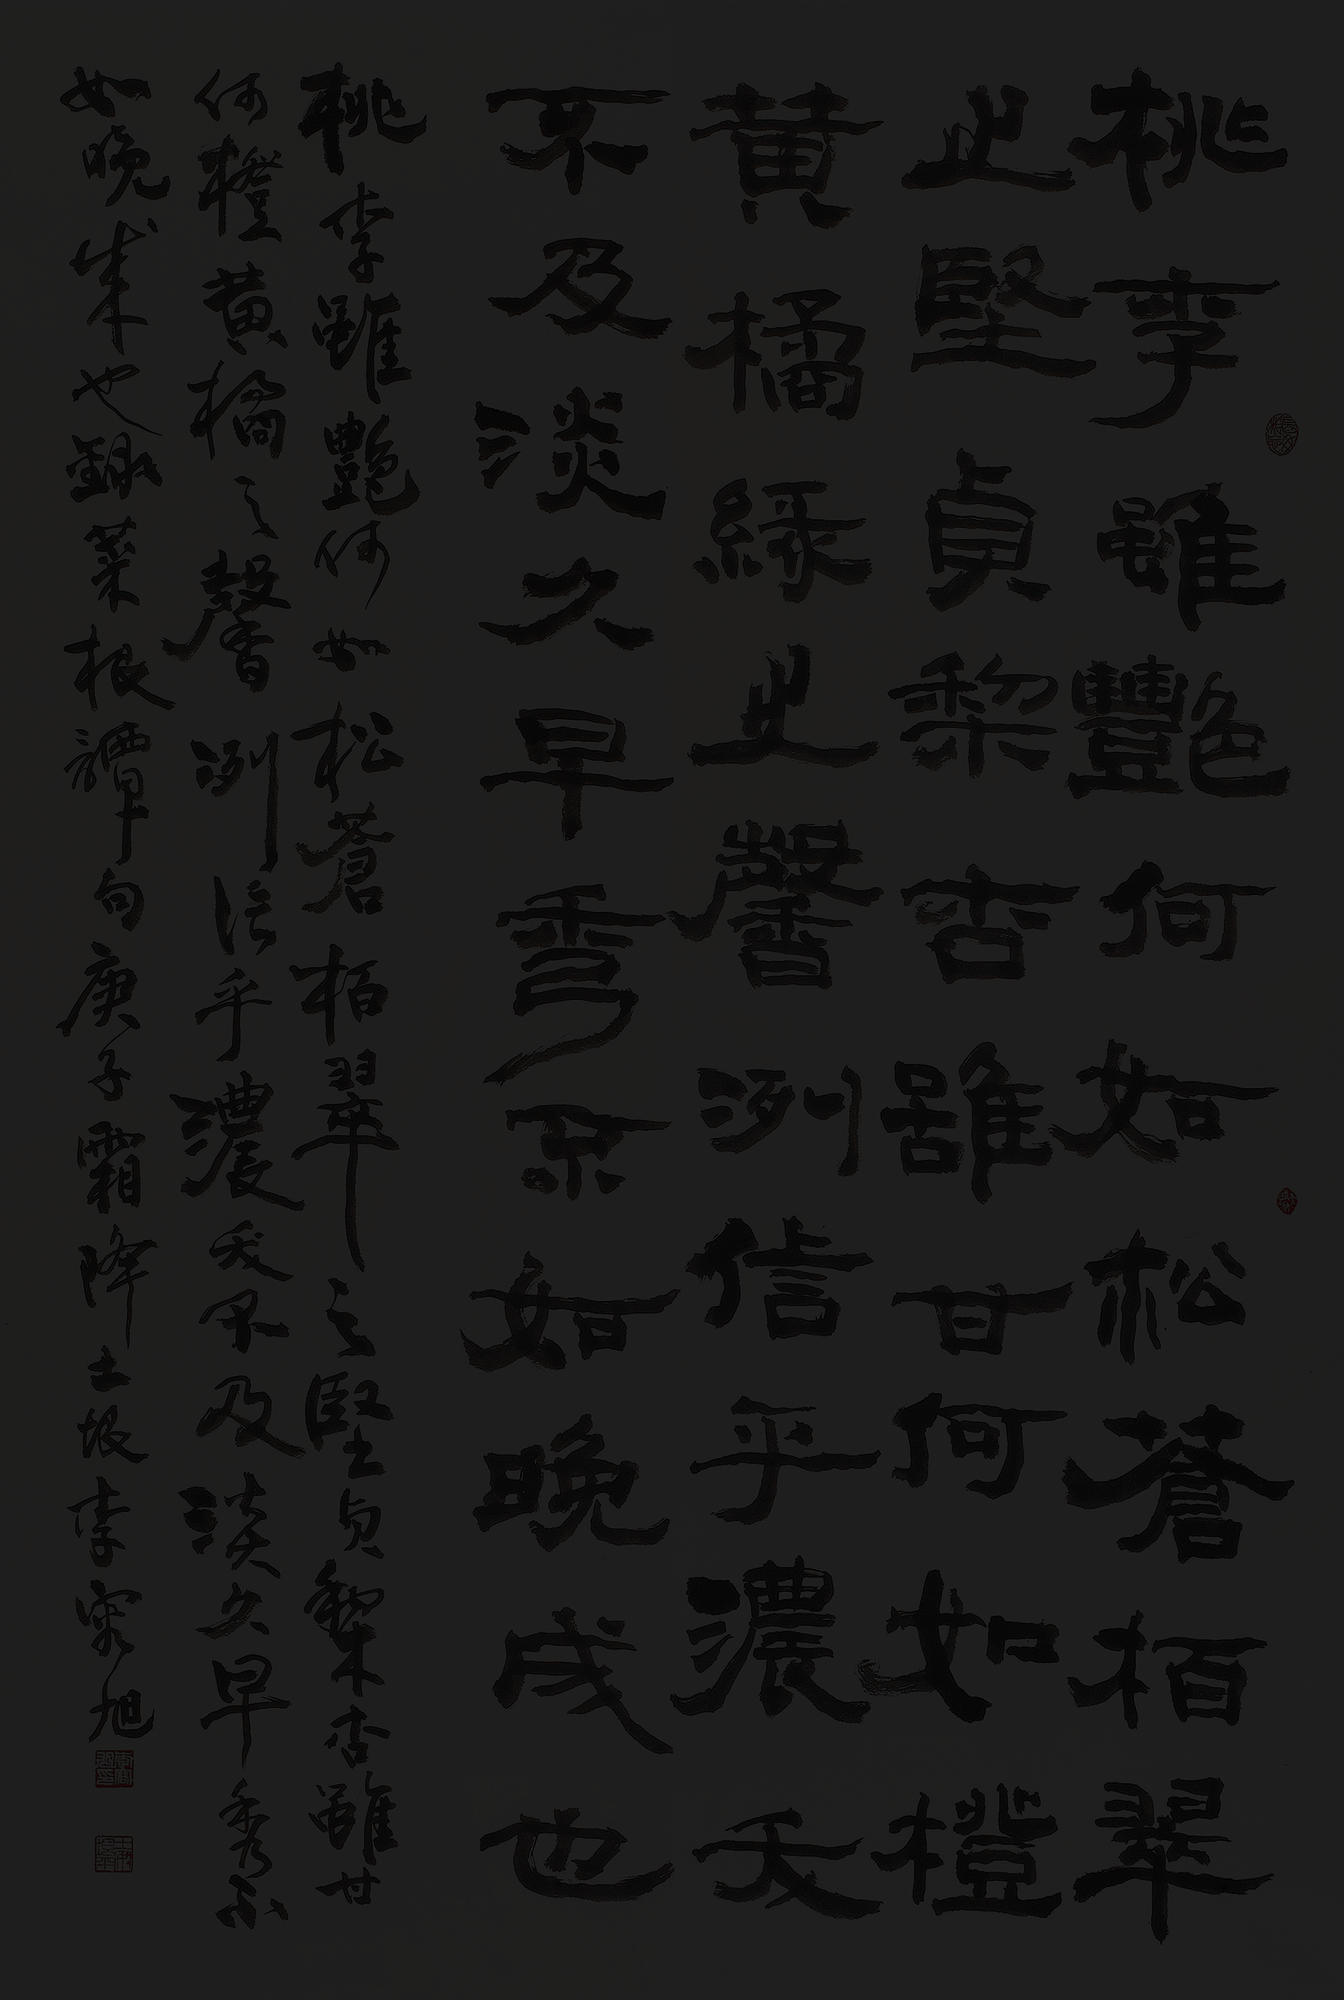 桃李雖艷何如松蒼栢翠
之堅貞棃杏雖甘何如橙
黃橘緑之馨洌信乎濃夭
不及淡久早秀不如晚成也
桃李雖艷何如松蒼栢翠之堅貞棃杏雖甘
何橙黃橘之馨洌信乎濃夭不及淡久早秀不
如晚成也錄菜根譚句庚子霜降土垠李旭